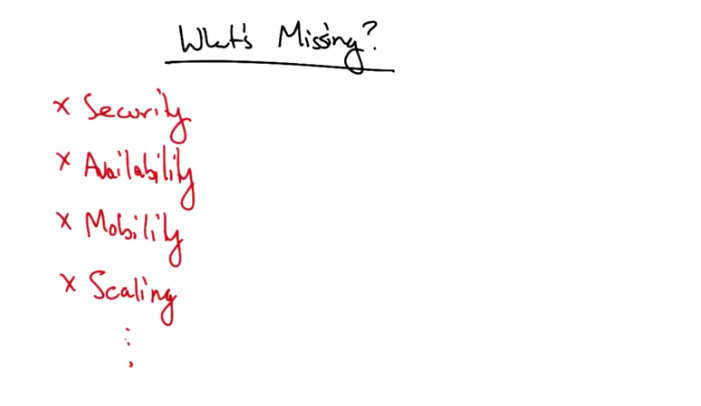 What's Missing?
x Security
x Availability
x Mobility
x Scaling
⋮